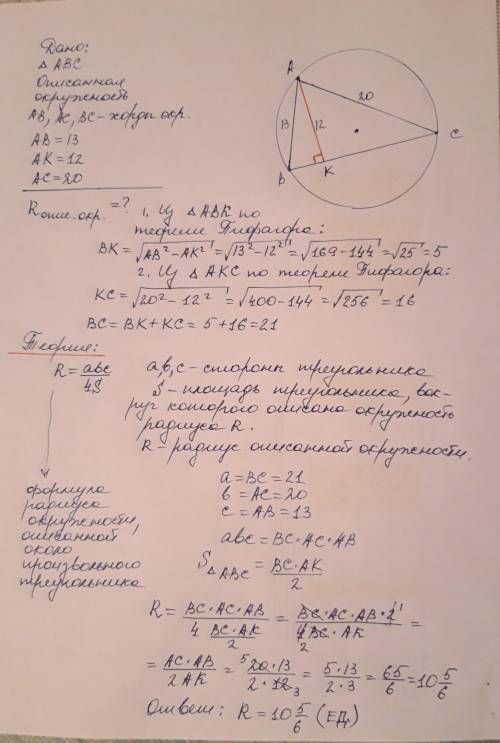 Дано:
△ ABC
Описанная
окружность
AB, AC, BC – хорды окр.
AB = 13
AK = 12
AC = 20
A
20
13
12
C
B
K
R опис. окр. = ? 1. Из △ ABK по
теореме Пифагора:
BK = √AB² − AK² = √13² − 12² = √169 − 144 = √25 = 5
2. Из △ AKC по теореме Пифагора:
KC = √20² − 12² = √400 − 144 = √256 = 16
BC = BK + KC = 5 + 16 = 21
Теория:
R = abc/4S
a, b, c – стороны треугольника
S – площадь треугольника, вок-
руг которого описана окружность
радиуса R.
R – радиус описанной окружности.
формула
радиуса
окружности,
описанной
около
произвольного
треугольника
a = BC = 21
b = AC = 20
c = AB = 13
abc = BC · AC · AB
S△ABC = BC · AK/2
R = BC · AC · AB/4 BC · AK/2 = BC · AC · AB · 2 1/4 2 BC · AK =
= AC · AB/2 AK = 5 20 · 13/2 · 12 3 = 5 · 13/2 · 3 = 65/6 = 10 5/6
Ответ: R = 10 5/6 (ЕД.)